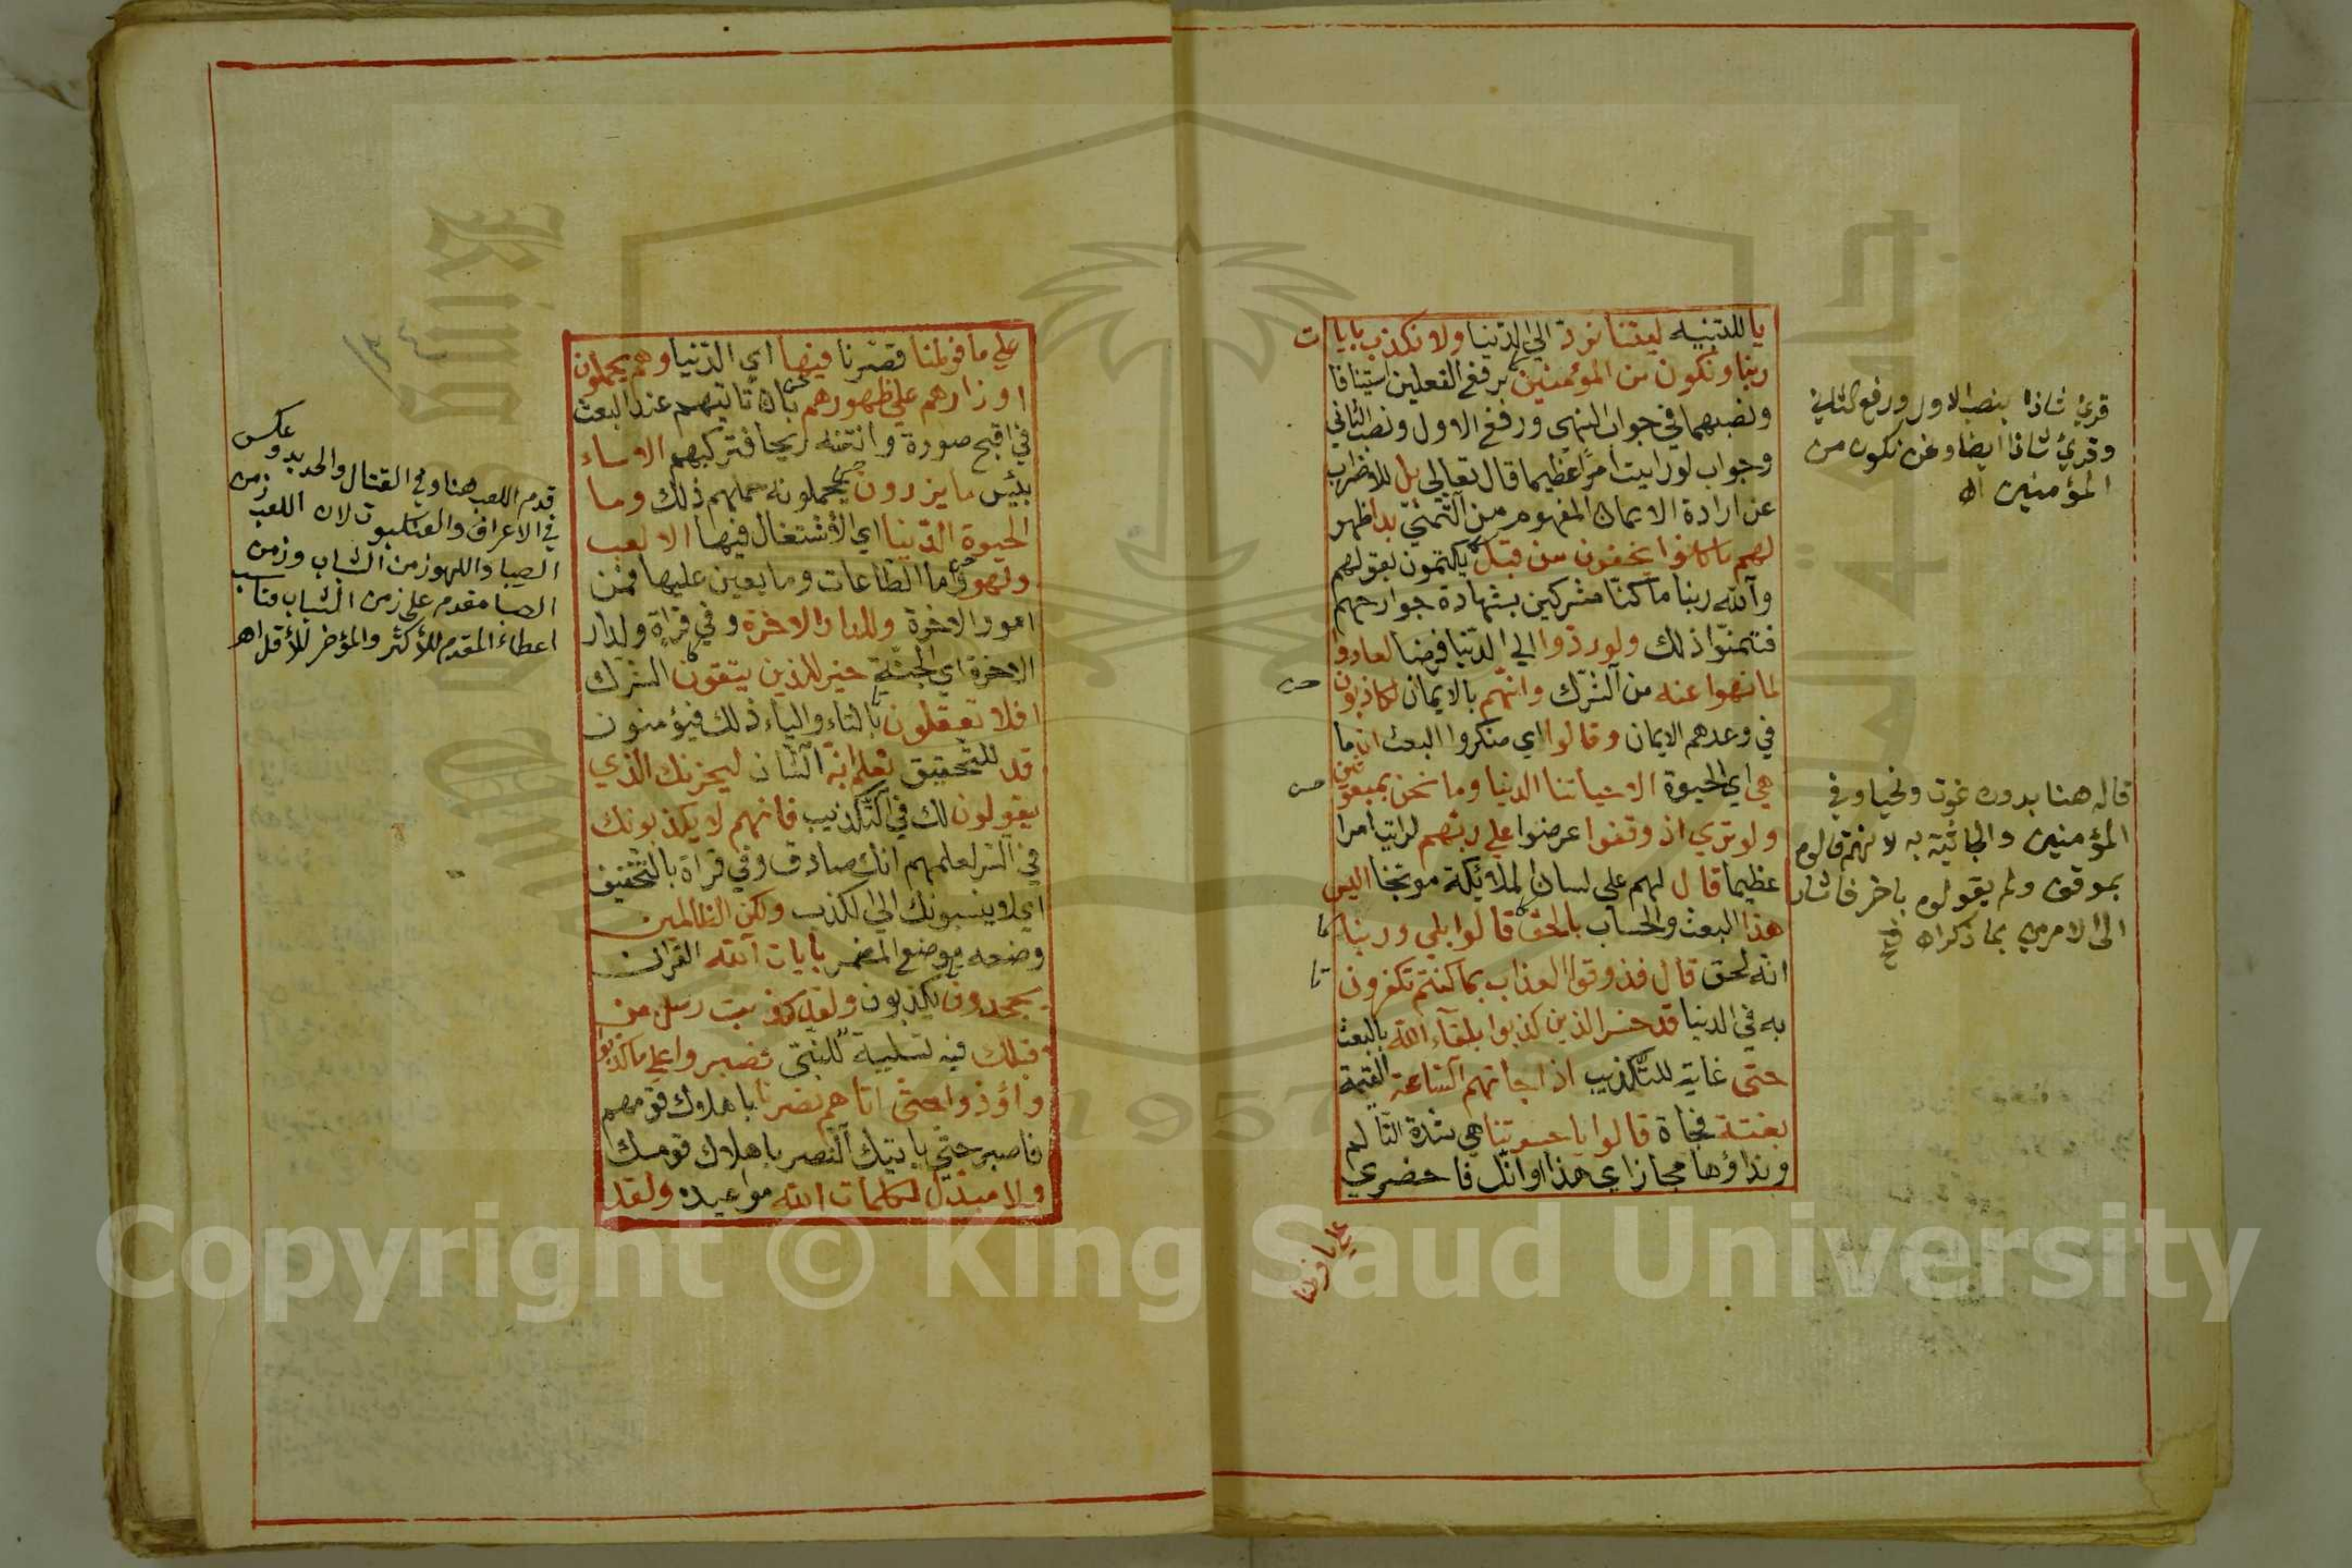 يا للتنبيه ليتنا نرد الي الدنيا ولا نكذب بايات
ربنا ونكون من المؤمنين برفع الفعلين استينافا
ونصبهما في جواب النهي ورفع الاول ونصب الثاني
وجواب لو رايت امرا عظيما قال تعالي بل للاضراب
عن ارادة الايمان المفهوم من التمني بدا ظهر
لهم ما كانوا يخفون من قبل يكتمون بقولهم
والله ربنا ما كنا مشركين بشهادة جوارحهم
فتمنوا ذلك ولو ردوا الي الدنيا فرضا لعادوا
لما نهوا عنه من الشرك وانهم لكاذبون بالايمان
في وعدهم الايمان وقالوا اي منكروا البعث ان ما
هي اي الحيوة الا حياتنا الدنيا وما نحن بمبعوثين
ولو تري اذ وقفوا عرضوا علي ربهم لرايت امرا
عظيما قال لهم علي لسان الملائكة موبخا اليس
هذا البعث والحساب بالحق قالوا بلي وربنا
انه لحق قال فذوقوا العذاب بما كنتم تكفرون
به في الدنيا قد خسر الذين كذبوا بلقاء الله بالبعث
حتى غاية للتكذيب اذا جاتهم الساعة القيمة
بغتة فجاة قالوا يا حسرتنا هي شدة التالم
ونداؤها مجاز اي هذا اوانك فاحضري
علي ما فرطنا
قرئ شاذا بنصب الاول ورفع الثاني
وقرئ شاذا ايضا ونحن نكون من
المؤمنين اه
قاله هنا بدون نموت ونحيا وفي
المؤمنين والجاثية به لانهم قالوه
بموقف ولم يقولوه باخر فاشار
الى الامرين بما ذكر اه
علي ما فرطنا قصرنا فيها اي الدنيا وهم يحملون
اوزارهم علي ظهورهم بان تاتيهم عند البعث
في اقبح صورة وانتنه ريحا فتركبهم الا ساء
بئس ما يزرون يحملونه حملهم ذلك وما
الحيوة الدنيا اي الاشتغال فيها الا لعب
ولهو واما الطاعات وما يعين عليها فمن
امور الاخرة وللدار الاخرة وفي قراة ولدار
الاخرة اي الجنة خير للذين يتقون الشرك
افلا تعقلون بالتاء والياء ذلك فيؤمنون
قد للتحقيق نعلم انه الشان ليحزنك الذي
يقولون لك في التكذيب فانهم لا يكذبونك
في السر لعلمهم انك صادق وفي قراة بالتخفيف
اي لا ينسبونك الي الكذب ولكن الظالمين
وضعه موضع المضمر بايات الله القران
يجحدون يكذبون ولقد كذبت رسل من
قبلك فيه تسلية للنبي فصبروا علي ما كذبوا
واوذوا حتى اتاهم نصرنا باهلاك قومهم
فاصبر حتي ياتيك النصر باهلاك قومك
ولا مبدل لكلمات الله مواعيده ولقد
قدم اللعب هنا وفي القتال والحديد وعكس
في الاعراف والعنكبوت لان اللعب زمن
الصبا واللهو زمن الشباب وزمن
الصبا مقدم على زمن الشباب فناسب
اعطاء المقدم للأكثر والمؤخر للأقل اهـ
١٣٤
1957
Copyright © King Saud University